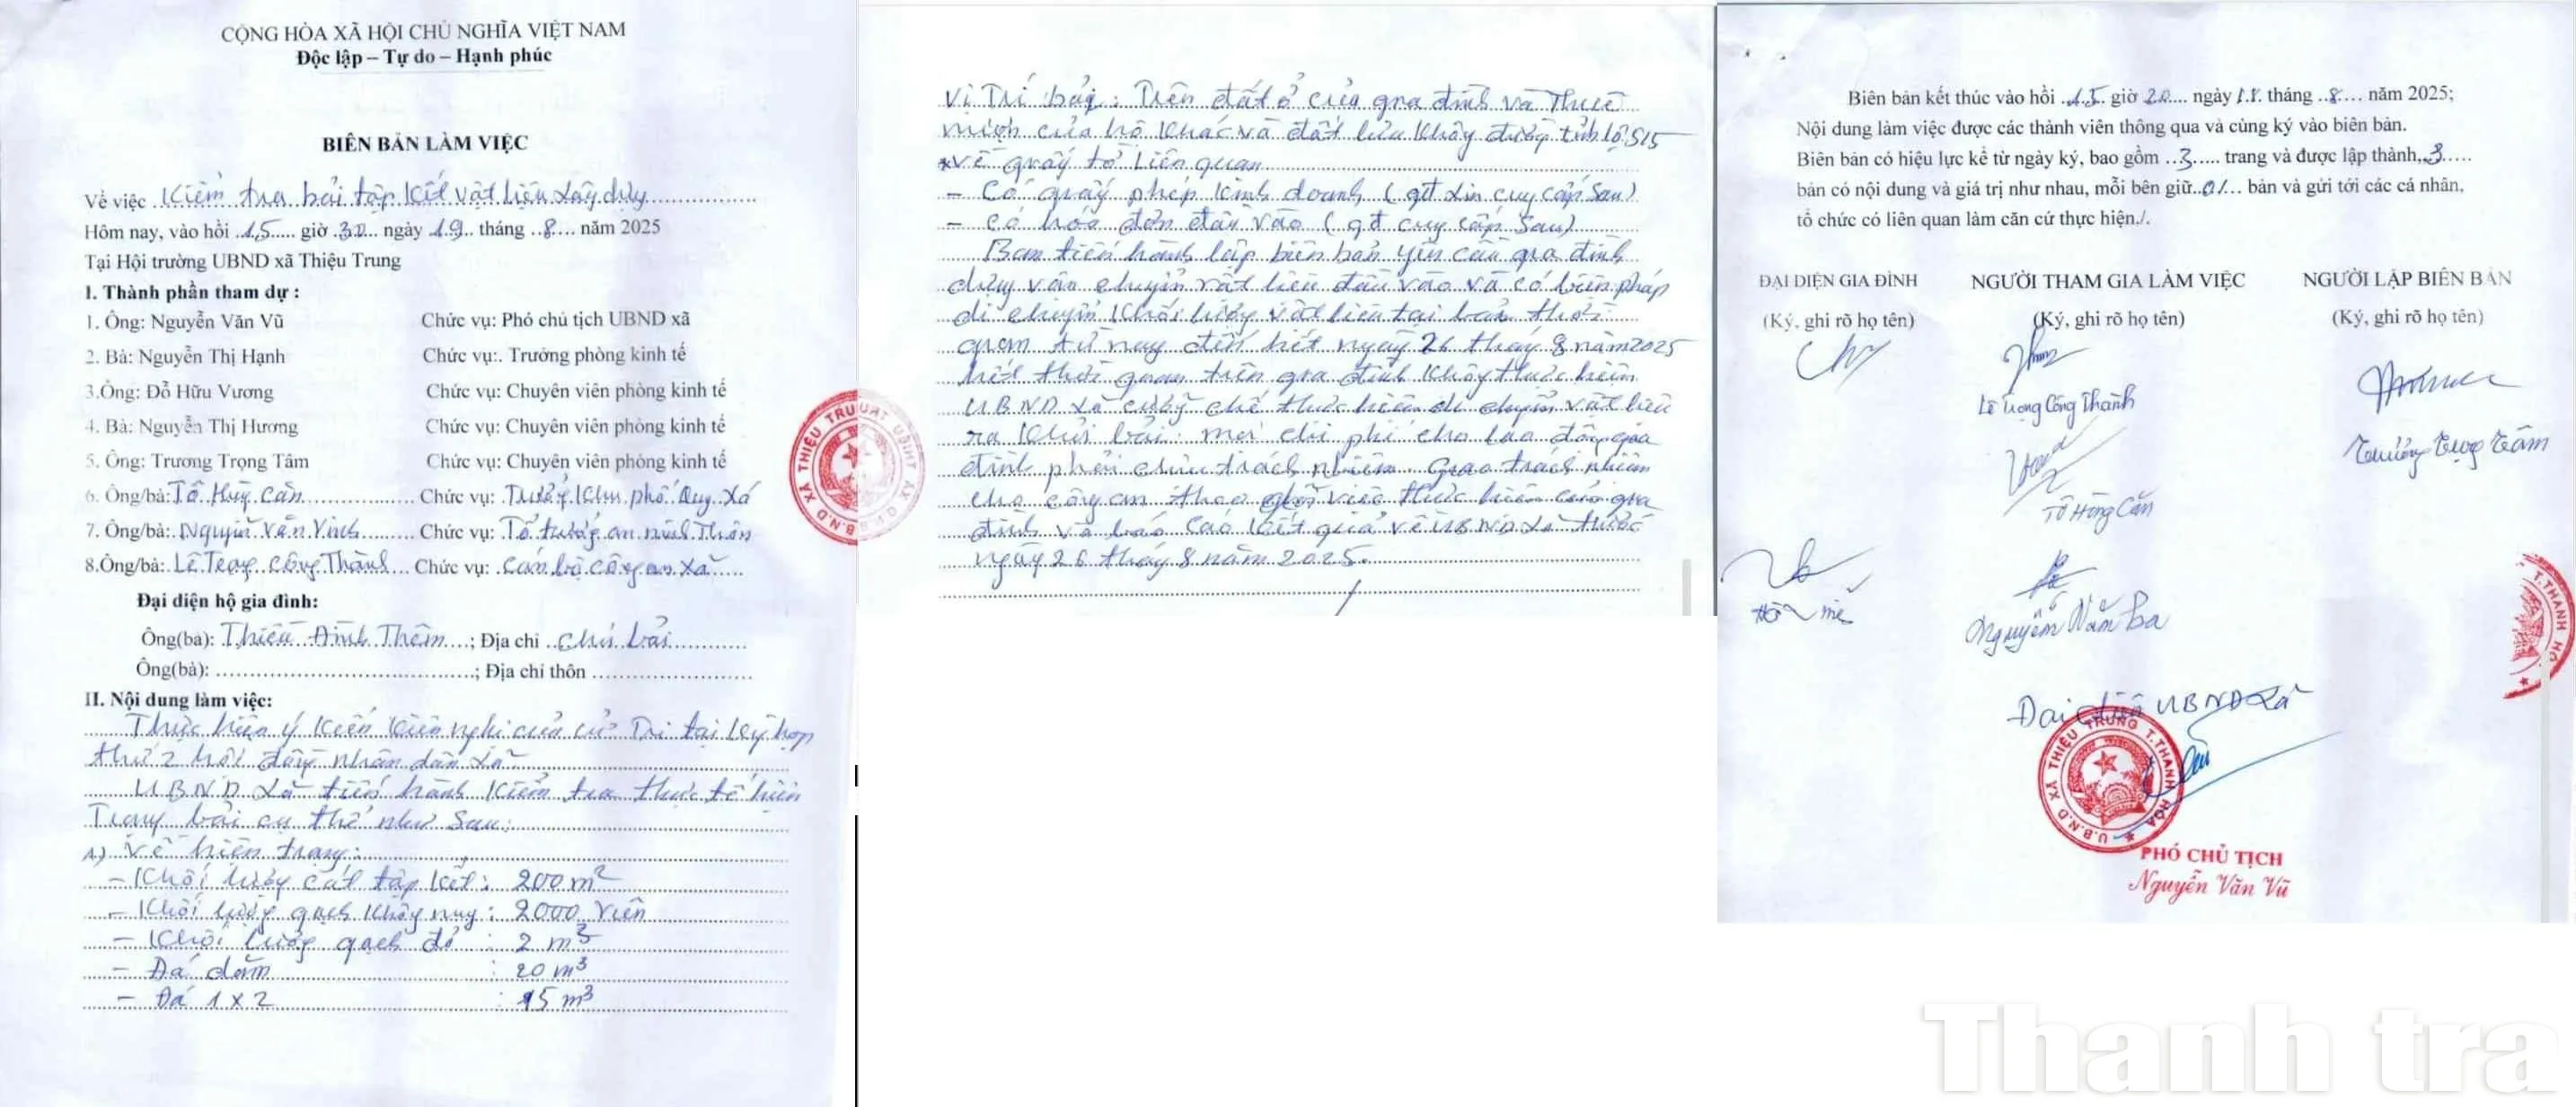 CỘNG HÒA XÃ HỘI CHỦ NGHĨA VIỆT NAM
Độc lập – Tự do – Hạnh phúc
BIÊN BẢN LÀM VIỆC
Về việc Kiểm tra bãi tập kết vật liệu xây dựng
Hôm nay, vào hồi 15 giờ 30 ngày 19 tháng 8 năm 2025
Tại Hội trường UBND xã Thiệu Trung
I. Thành phần tham dự :
1. Ông: Nguyễn Văn Vũ Chức vụ: Phó chủ tịch UBND xã
2. Bà: Nguyễn Thị Hạnh Chức vụ:. Trưởng phòng kinh tế
3.Ông: Đỗ Hữu Vương Chức vụ: Chuyên viên phòng kinh tế
4. Bà: Nguyễn Thị Hương Chức vụ: Chuyên viên phòng kinh tế
5. Ông: Trương Trọng Tâm Chức vụ: Chuyên viên phòng kinh tế
6. Ông/bà: Tô Hùng Cần Chức vụ: Trưởng Khu phố Quy Xá
7. Ông/bà: Nguyễn Văn Chức vụ: Tổ trưởng an ninh Thôn
8.Ông/bà: Lê Trọng Công Thành Chức vụ: Cán bộ công an xã
Đại diện hộ gia đình:
Ông(bà): Thiều Đình Thêm ; Địa chỉ chủ bãi
Ông(bà): ; Địa chỉ thôn
II. Nội dung làm việc:
Thực hiện ý kiến kiến nghị của cử Tri tại kỳ họp
thứ 2 hội đồng nhân dân xã
UBND xã tiến hành kiểm tra thực tế hiện
Trạng bãi cụ thể như sau:
1) Về hiện trạng:
- Khối lượng cát tập kết : 200 m²
- Khối lượng gạch không nung : 2000 viên
- Khối lượng gạch đỏ : 2 m³
- Đá dăm : 20 m³
- Đá 1 x 2 : 15 m³
Vị Trí bãi : Trên đất ở của gia đình và Thuê
mượn của hộ khác và đất lúa không đường tỉnh lộ 515
* Về giấy tờ liên quan
- Có giấy phép kinh doanh (gđ xin cung cấp sau)
- Có hóa đơn đầu vào (gđ cung cấp sau)
Ban tiến hành lập biên bản yêu cầu gia đình
dừng vận chuyển vật liệu đầu vào và có biện pháp
di chuyển khối lượng vật liệu tại bãi thời
gian từ nay đến hết ngày 26 tháng 8 năm 2025
hết thời gian trên gia đình không thực hiện
UBND xã cưỡng chế thực hiện di chuyển vật liệu
ra khỏi bãi. mọi chi phí cho lao động gia
đình phải chịu trách nhiệm. Giao trách nhiệm
cho công an theo dõi việc thực hiện của gia
đình và báo cáo kết quả về UBND xã trước
ngày 26 tháng 8 năm 2025.
Biên bản kết thúc vào hồi 15 giờ 20 ngày tháng 8 năm 2025;
Nội dung làm việc được các thành viên thông qua và cùng ký vào biên bản.
Biên bản có hiệu lực kể từ ngày ký, bao gồm 3 trang và được lập thành 3
bản có nội dung và giá trị như nhau, mỗi bên giữ 01 bản và gửi tới các cá nhân,
tổ chức có liên quan làm căn cứ thực hiện./.
ĐẠI DIỆN GIA ĐÌNH NGƯỜI THAM GIA LÀM VIỆC NGƯỜI LẬP BIÊN BẢN
(Ký, ghi rõ họ tên) (Ký, ghi rõ họ tên) (Ký, ghi rõ họ tên)
Lê Trọng Công Thành
Trương Trọng Tâm
Tô Hùng Cần
Nguyễn Văn Ba
Đại diện UBND xã
U.B.N.D XÃ THIỆU TRUNG T.THANH HÓA
PHÓ CHỦ TỊCH
Nguyễn Văn Vũ
Thanh tra